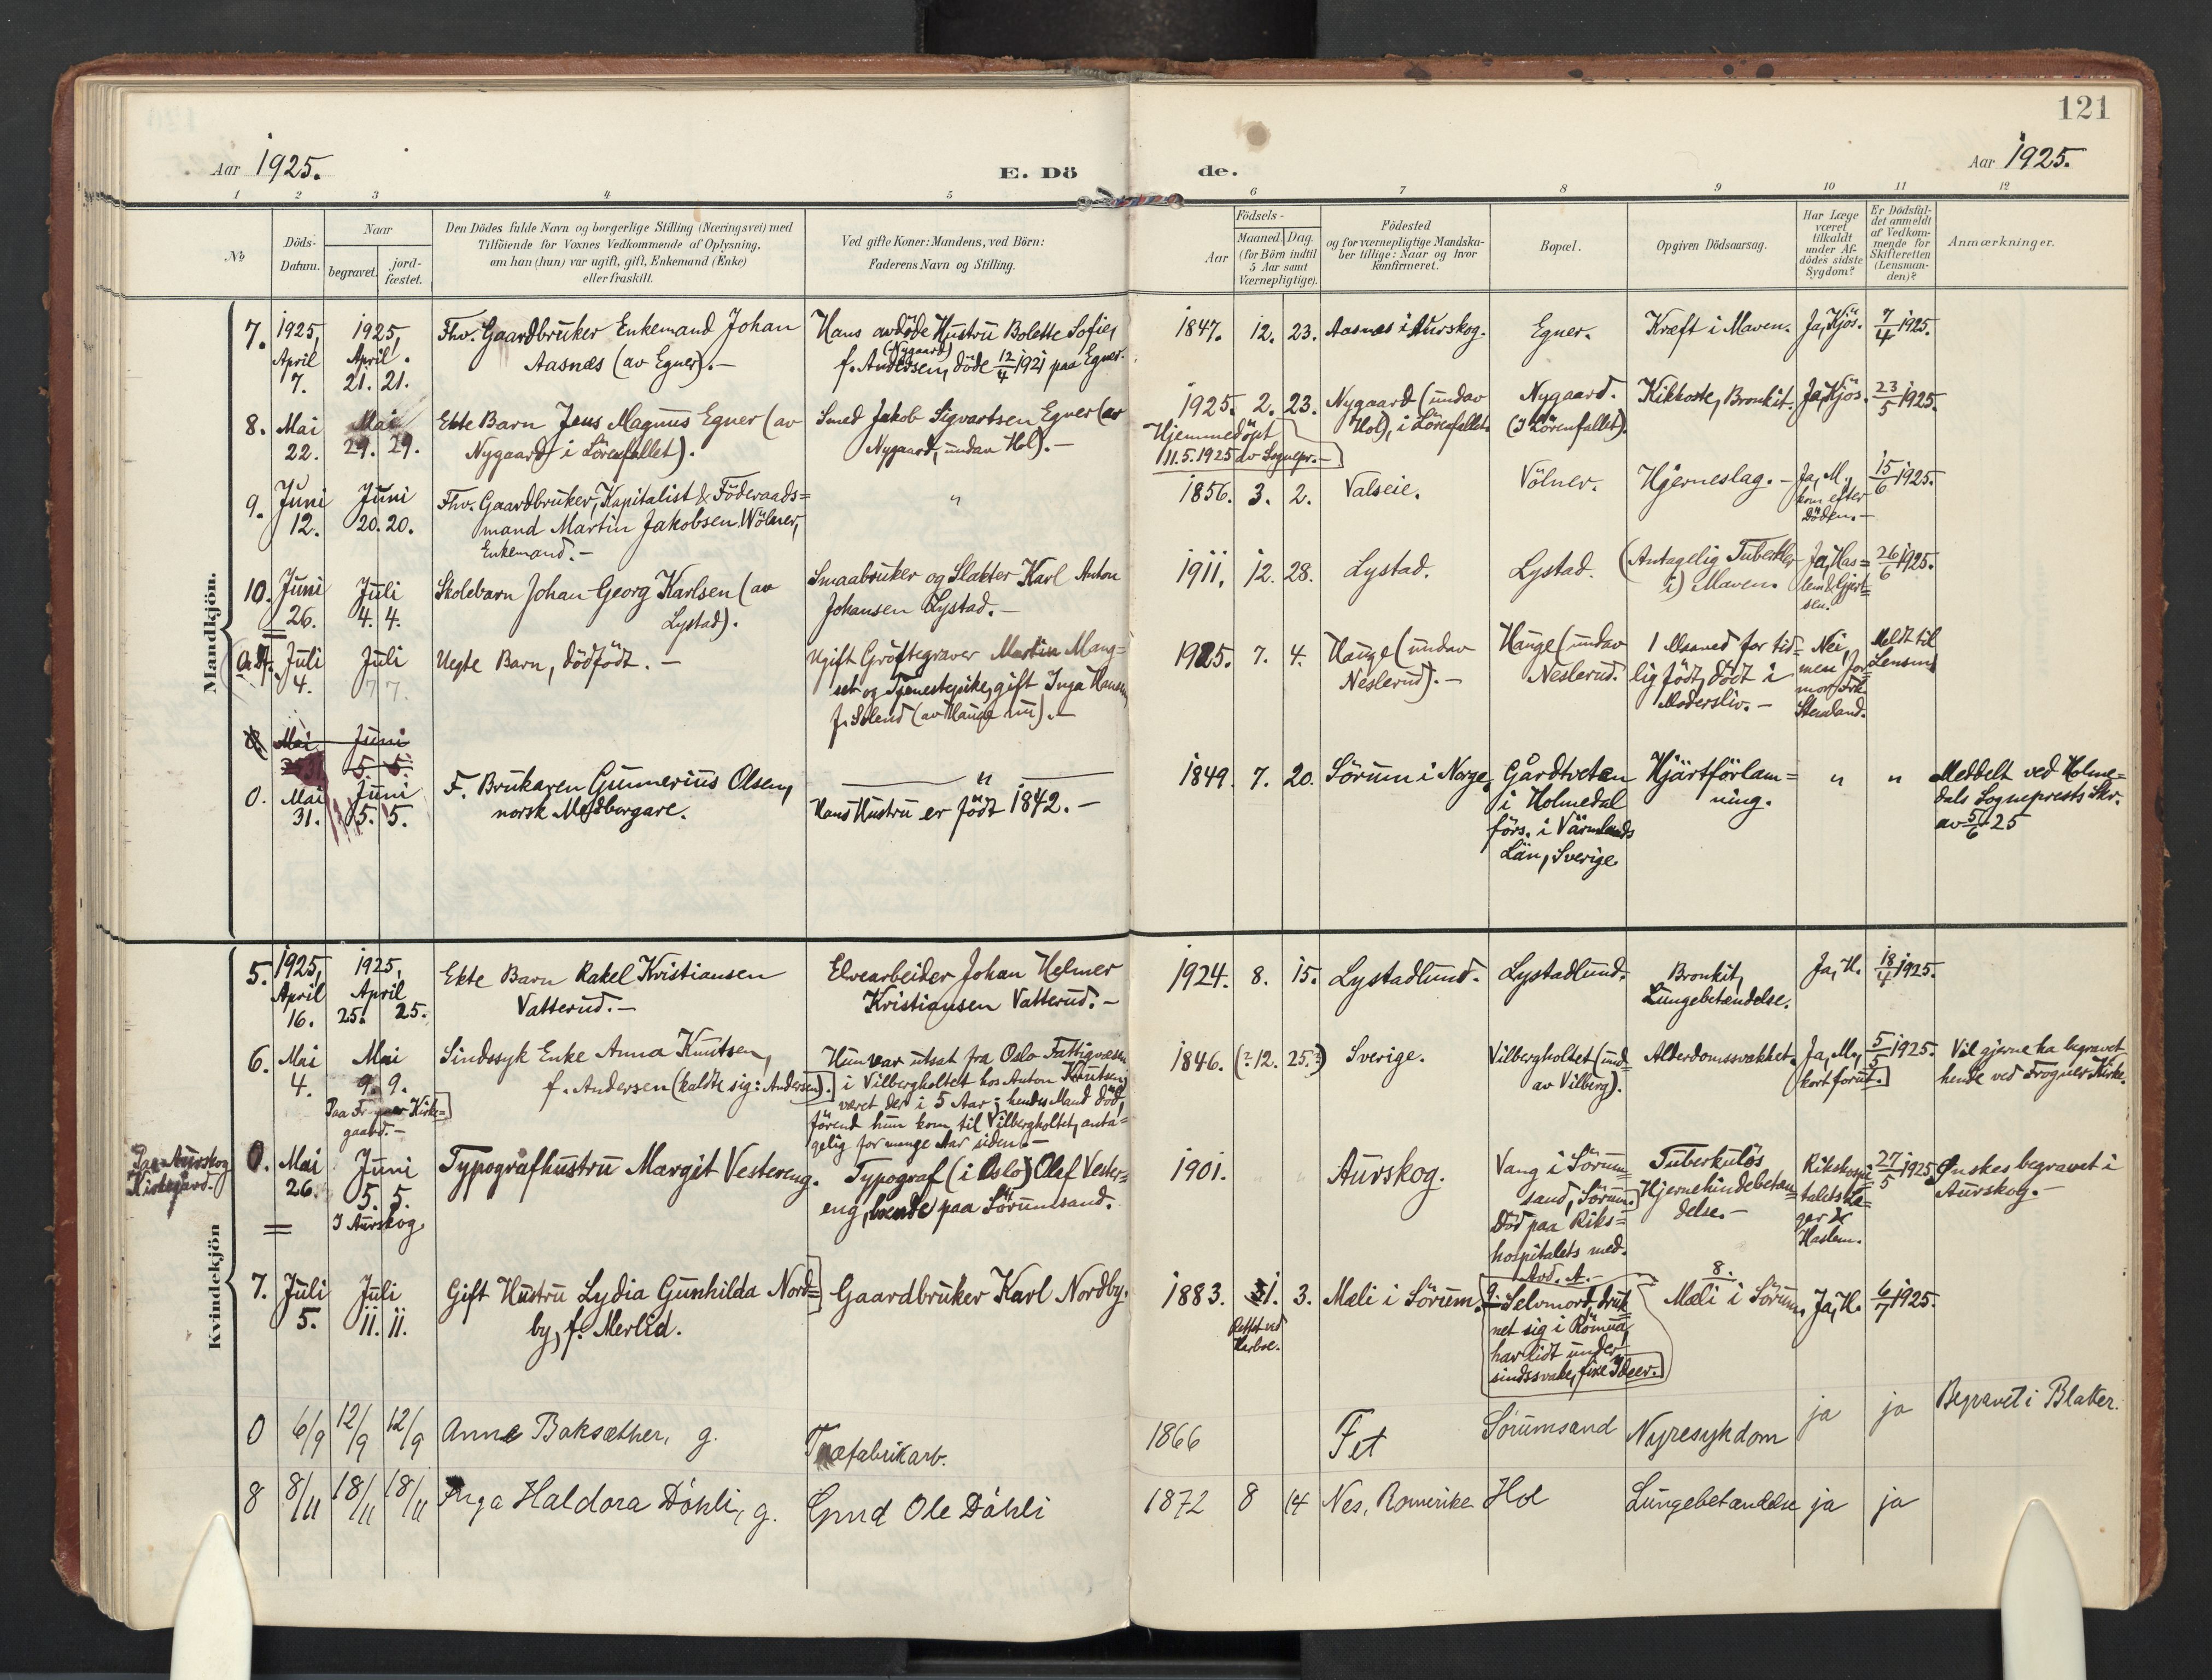 121
Aar 1925.
E. Dö
de.
Aar 1925.
1 2 3 4 5 6 7 8 9 10 11 12
№
Döds-
Datum.
Naar
begravet.
jord-
fæstet.
Den Dödes fulde Navn og borgerlige Stilling (Næringsvei) med
Tilföiende for Voxnes Vedkommende af Oplysning,
om han (hun) var ugift, gift, Enkemand (Enke)
eller fraskilt.
Ved gifte Koner: Mandens, ved Börn:
Faderens Navn og Stilling.
Födsels-
Aar
Maaned. Dag.
(for Börn indtil
5 Aar samt
Værnepligtige).
Födested
og for værnepligtige Mandska-
ber tillige: Naar og hvor
konfirmeret.
Bopæl.
Opgiven Dödsaarsag.
Har Læge
været
tilkaldt
under Af-
dödes sidste
Sygdom?
Er Dödsfal-
det anmeldt
af Vedkom-
mende for
Skifteretten
(Lensman-
den)?
Anmærkninger.
Mandkjön.
7.
1925,
April
7.
1925,
April.
21. 21.
Fhv. Gaardbruker Enkemand Johan
Aasnæs (av Egner).-
Hans avdöde Hustru Bolette Sofie,
(Nygaard)
f. Andersen, döde 12/4 1921 paa Egner.
1847. 12. 23.
Aasnæs i Aurskog.
Egner.
Kræft i Maven.
Ja, Kjös.
7/4 1925.
8.
Mai
22.
Mai
29. 29.
Ekte Barn Jens Magnus Egner (av
Nygaard i Lörenfallet).
Smed Jakob Sigvartsen Egner (av
Nygaard, undav Hol).-
1925. 2. 23.
Hjemmedöpt
11.5.1925 av Sognepr.-
Nygaard (undav
Hol), i Lörenfallet.
Nygaard.
(I Lörenfallet).
Kikhoste, Bronkit.
Ja, Kjös.
23/5 1925.
9.
Juni
12.
Juni
20. 20.
Fhv. Gaardbruker, Kapitalist & Föderaads=
mand Martin Jakobsen Wölner,
Enkemand.-
"
1856. 3. 2.
Valseie.
Völner.
Hjerneslag.-
Ja, M.,
kom efter
Döden.-
15/6 1925.
10.
Juni
26.
Juli
4. 4.
Skolebarn Johan Georg Karlsen (av
Lystad).
Smaabruker og Slakter Karl Anton
Johansen Lystad.-
1911. 12. 28.
Lystad.
Lystad.
(Antagelig Tuberkler
i) Maven.
Ja, Has=
lem & Gjert=
sen.
26/6 1925.
Juli
4.
Juli
7 7.
Uegte Barn, dödfödt.-
Ugift Gröftegraver Martin Mang=
set og Tjenestepike, gift Inga Hansen,
(av Hauge nu).-
1925. 7. 4.
Hauge (undav
Neslerud).-
Hauge (undav
Neslerud.
1 Maaned for tid=
lig födt, dödt i
Modersliv.-
Nei,
men Jor=
mor Frk.
Meldt til
Lensmd
Mai
Juni
5 5
0.
Mai
31.
Juni
5. 5.
F. Brukaren Gunnerius Olsen,
norsk Medborgare.
"
Hans Hustru er födt 1842.-
1849. 7. 20.
Sörum i Norge.
Gårdtveten
i Holmedal
förs. i Värmlands
Län, Sverige
Hjärtförlam=
ning.
" "
Meddelt ved Holme=
dals Sogneprests Skr.
av 5/6 25
Kvindekjön
5.
1925,
April
16.
1925,
April
25. 25.
Ekte Barn Rakel Kristiansen
Vatterud.-
Elvearbeider Johan Helmer
Kristiansen Vatterud.-
1924. 8. 15.
Lystadlund.
Lystadlund.
Bronkit,
Lungebetændelse.
Ja, H.
18/4 1925.
6.
Mai
4.
Mai
9. 9.
Paa Frogner Kirke=
gaard.-
Sindssyk Enke Anna Knutsen,
f. Andersen (kaldte sig: Andersen).
Hun var utsat fra Oslo Fattigvæsen
i Vilbergholtet hos Anton Knutsen,
været der i 5 Aar; hendes Mand död,
förend hun kom til Vilbergholtet, anta=
gelig for mange Aar siden.-
1846. (?12. 25.?)
Sverige.
Vilbergholtet (und=
av Vilberg).
Alderdomssvakhet.
Ja, M.,
kort forut.
5/5 1925.
Vil gjerne ha begravet
hende ved Frogner Kirke.
Paa Aurskog
Kirkegård.-
0.
Mai
26.
Juni
5. 5.
I Aurskog.
Typografhustru Margit Vestereng.
Typograf (i Oslo) Olaf Vester=
eng, boende paa Sörumsand.
1901. " "
Aurskog.
Vang i Sörum=
sand, Sörum.
Död paa Riks=
hospitalets med.
Avd. A.-
Tuberkulös
Hjernehindebetæn=
delse.-
Rikshospi=
talets Læ=
ger &
Haslem.
27/5 1925.
Ønskes begravet i
Aurskog.-
7.
Juli
5.
Juli
11. 11.
Gift Hustru Lydia Gunhilda Nord=
by, f. Merlid.
Gaardbruker Karl Nordby.
1883. 1. 3.
Rettet ved
Mæli i Sörum.
9.
Selvmord, druk=
net sig i Römua,
har lidt under
sindssvake, fixe Ideer.
8.
Mæli i Sörum.
Ja, H.
6/7 1925.
0
6/9 12/9 12/9
Anne Baksæther, g.
Træfabrikarb.
1866
Fet
Sørumsand
Nyresykdom
ja ja
Begravet i Blaker.
8
8/11 18/11 18/11
Inga Haldora Döhli, g.
Gmd Ole Döhli
1872 8 14
Nes, Romerike
Hol
Lungebetændelse
ja ja